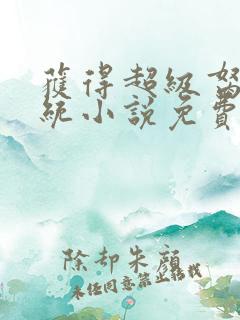 獲得超級
統小說免費
除却朱顔
未经同意禁止转载